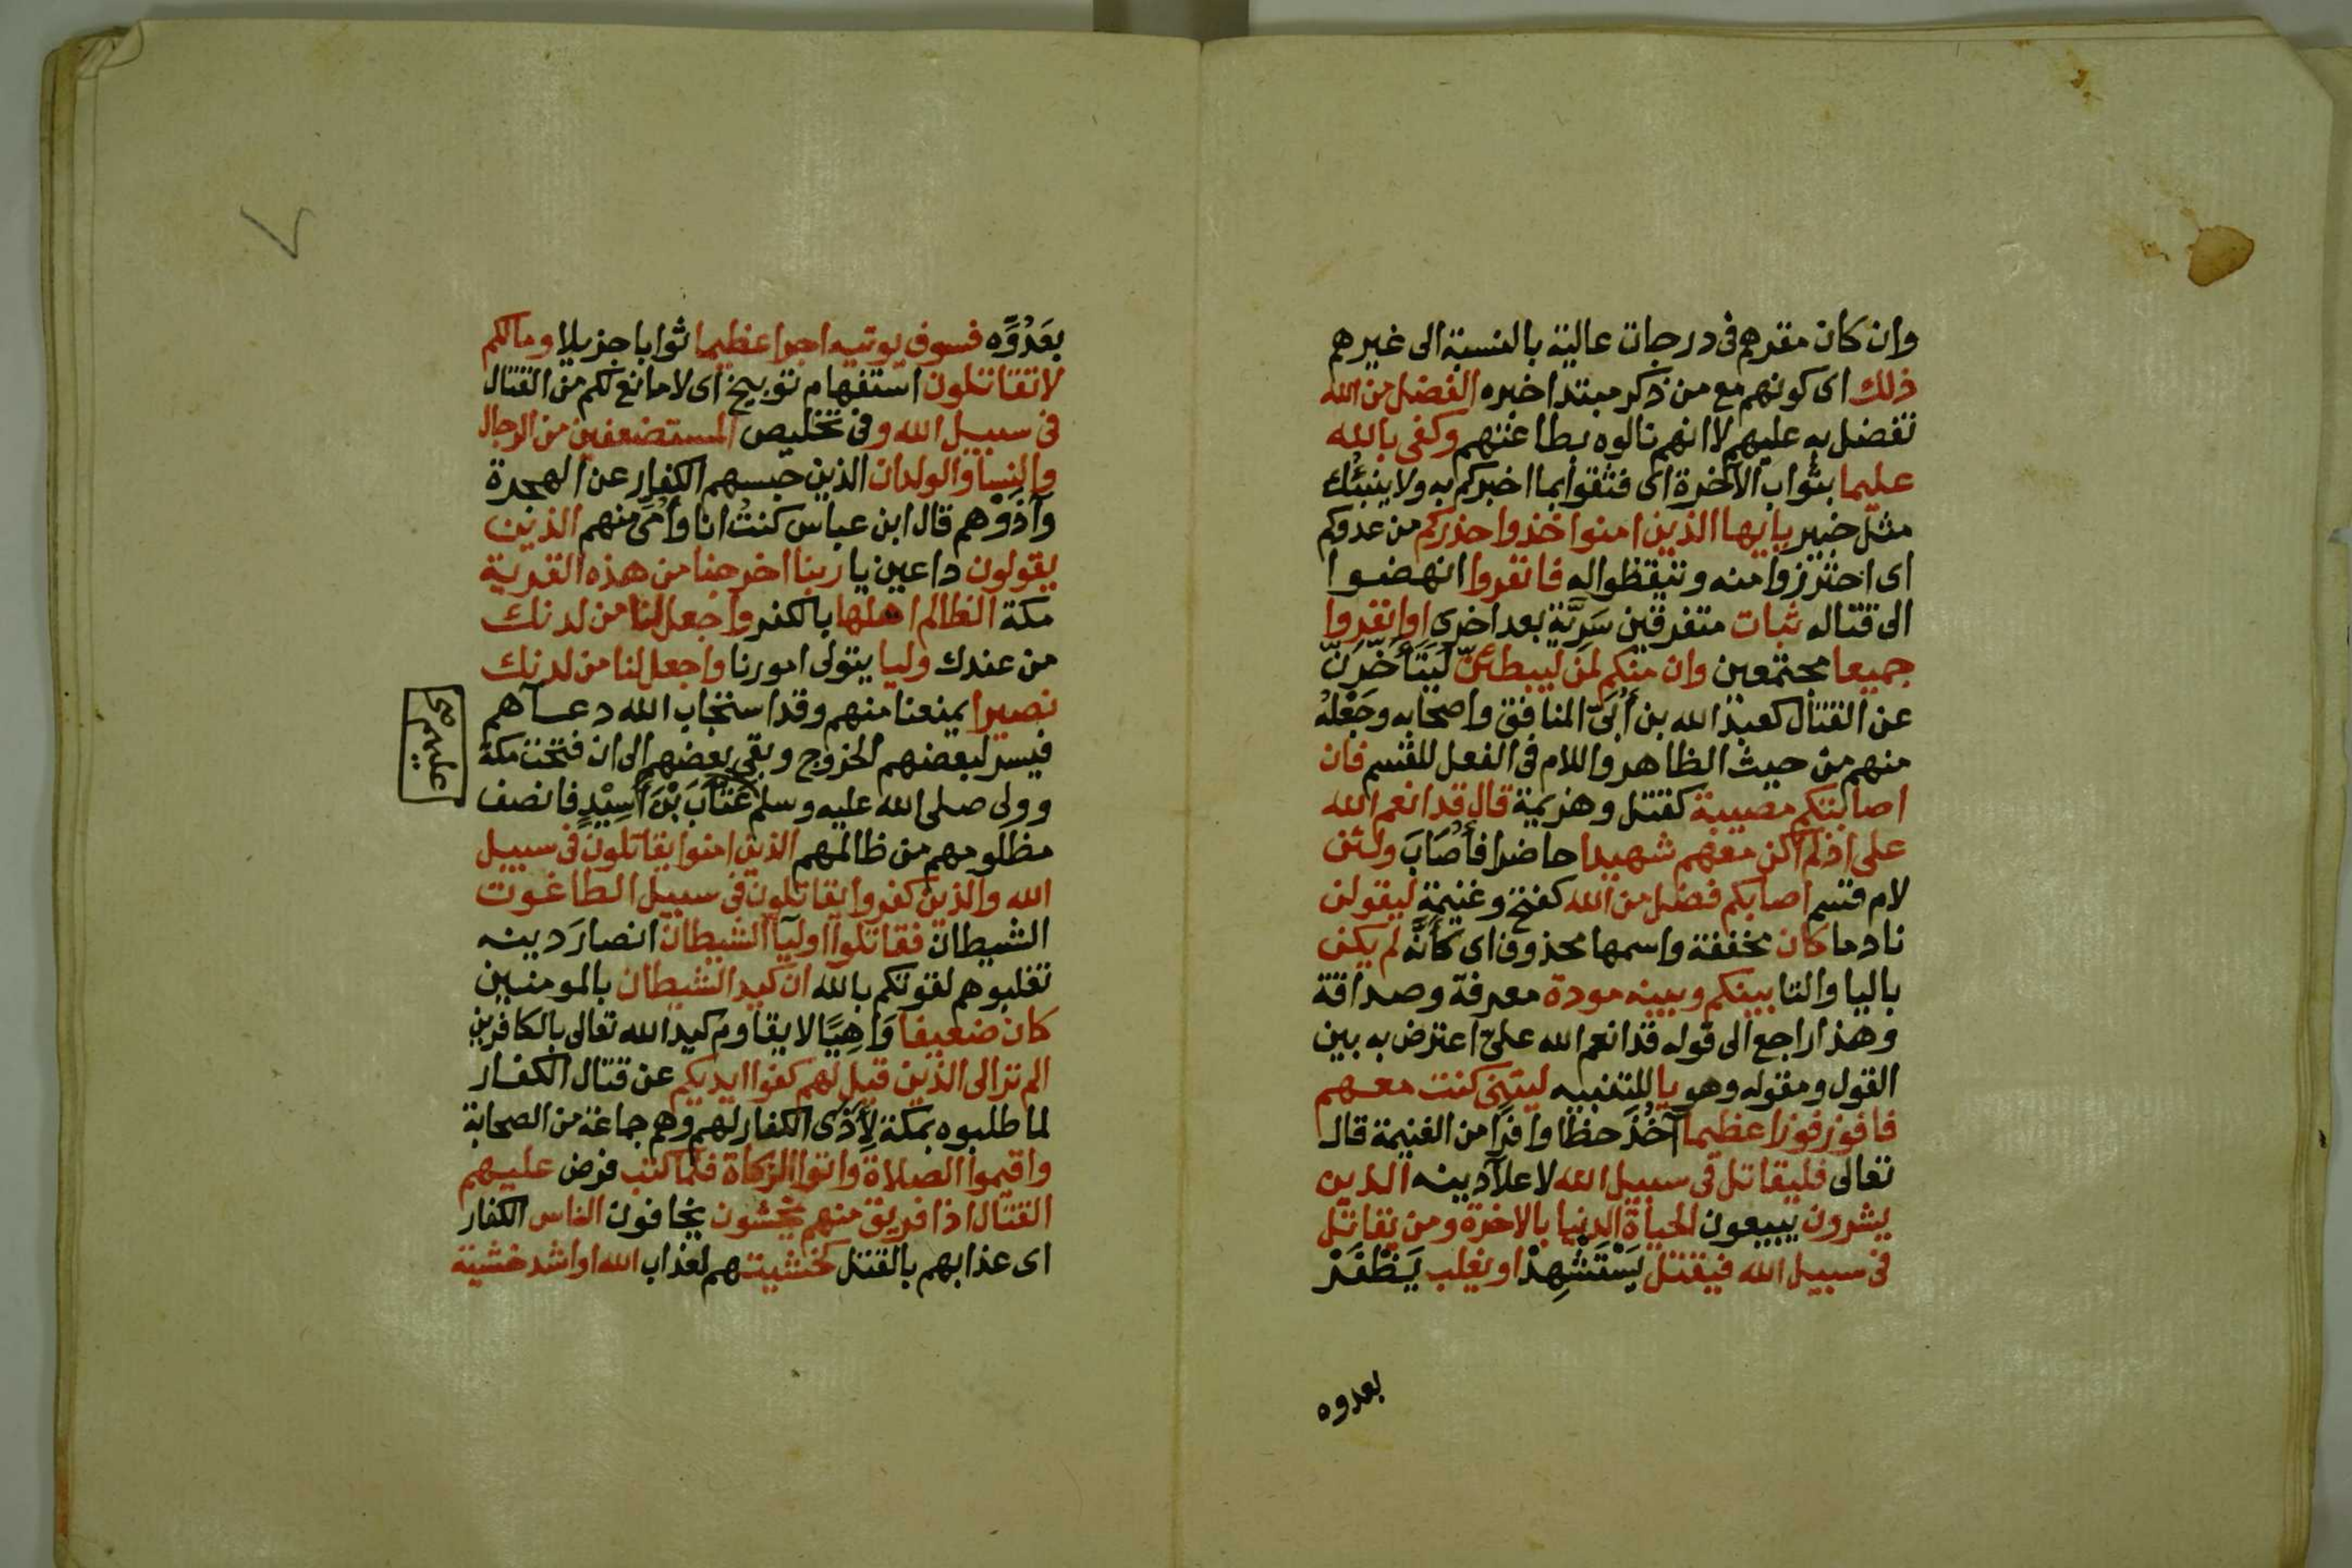 وان كان مقرهم فى درجات عالية بالنسبة الى غيرهم
ذلك اى كونهم مع من ذكر مبتدا خبره الفضل من الله
تفضل به عليهم لا انهم نالوه بطاعتهم وكفى بالله
عليما بثواب الآخرة اى فثقوا بما اخبركم به ولا ينبئك
مثل خبير يا يها الذين امنوا خذوا حذركم من عدوكم
اى احترزوا منه وتيقظوا له فانفروا انهضوا
الى قتاله ثبات متفرقين سَرِيَّةٍ بعد اخرى او انفروا
جميعا مجتمعين وان منكم لمن ليبطئنّ ليَتَأَخَّرَنّ
عن القتال كعبد الله بن أُبَىّ المنافق واصحابه وجَعْلُهُ
منهم من حيث الظاهر واللام فى الفعل للقسم فان
اصابتكم مصيبة كقتل وهزيمة قال قد انعم الله
على اذ لم اكن معهم شهيدا حاضرا فأُصَابَ ولئن
لام قسم اصابكم فضل من الله كفتح وغنيمة ليقولن
نادما كان مخففة واسمها محذوف اى كأنّه لم يكن
باليا والتا بينكم وبينه مودة معرفة وصداقة
وهذا راجع الى قوله قد انعم الله علىّ اعترض به بين
القول ومقوله وهو يا للتنبيه ليتنى كنت معهم
فافوز فوزا عظيما آخُذَ حظا وافرا من الغنيمة قال
تعالى فليقاتل فى سبيل الله لاعلآ دينه الذين
يشرون يبيعون الحياة الدنيا بالاخرة ومن يقاتل
فى سبيل الله فيقتل يَسْتَشْهِدْ او يغلب يَظْفَرْ
بعدوه
بعَدُوِّه فسوف يوتيه اجرا عظيما ثوابا جزيلا ومالكم
لا تقاتلون استفهام توبيخ اى لا مانع لكم من القتال
فى سبيل الله وفى تخليص المستضعفين من الرجال
والنسا والولدان الذين حبسهم الكفار عن الهجرة
وآذَوْهم قال ابن عباس كنتُ انا وأُمى منهم الذين
يقولون داعين يا ربنا اخرجنا من هذه القرية
مكة الظالم اهلها بالكفر واجعل لنا من لدنك
من عندك وليا يتولى امورنا واجعل لنا من لدنك
نصيرا يمنعنا منهم وقد استجاب الله دعآهم
فيسر لبعضهم الخروج وبقى بعضهم الى ان فتحت مكة
وولى صلى الله عليه وسلم عَتّابَ بْنَ أَسِيْدٍ فانصف
مظلومهم من ظالمهم الذين امنوا يقاتلون فى سبيل
الله والذين كفروا يقاتلون فى سبيل الطاغوت
الشيطان فقاتلوا اوليآ الشيطان انصارَ دينه
تغلبوهم لقوتكم بالله ان كيد الشيطان بالمومنين
كان ضعيفا وَاهِيًا لا يقاوم كيد الله تعالى بالكافرين
الم تر الى الذين قيل لهم كفوا ايديكم عن قتال الكفار
لما طلبوه بمكة لِأَذَى الكفار لهم وهم جماعة من الصحابة
واقيموا الصلاة واتوا الزكاة فلما كتب فرض عليهم
القتال اذا فريق منهم يخشون يخافون الناس الكفار
اى عذابهم بالقتل كخشيتهم لعذاب الله او اشد خشية